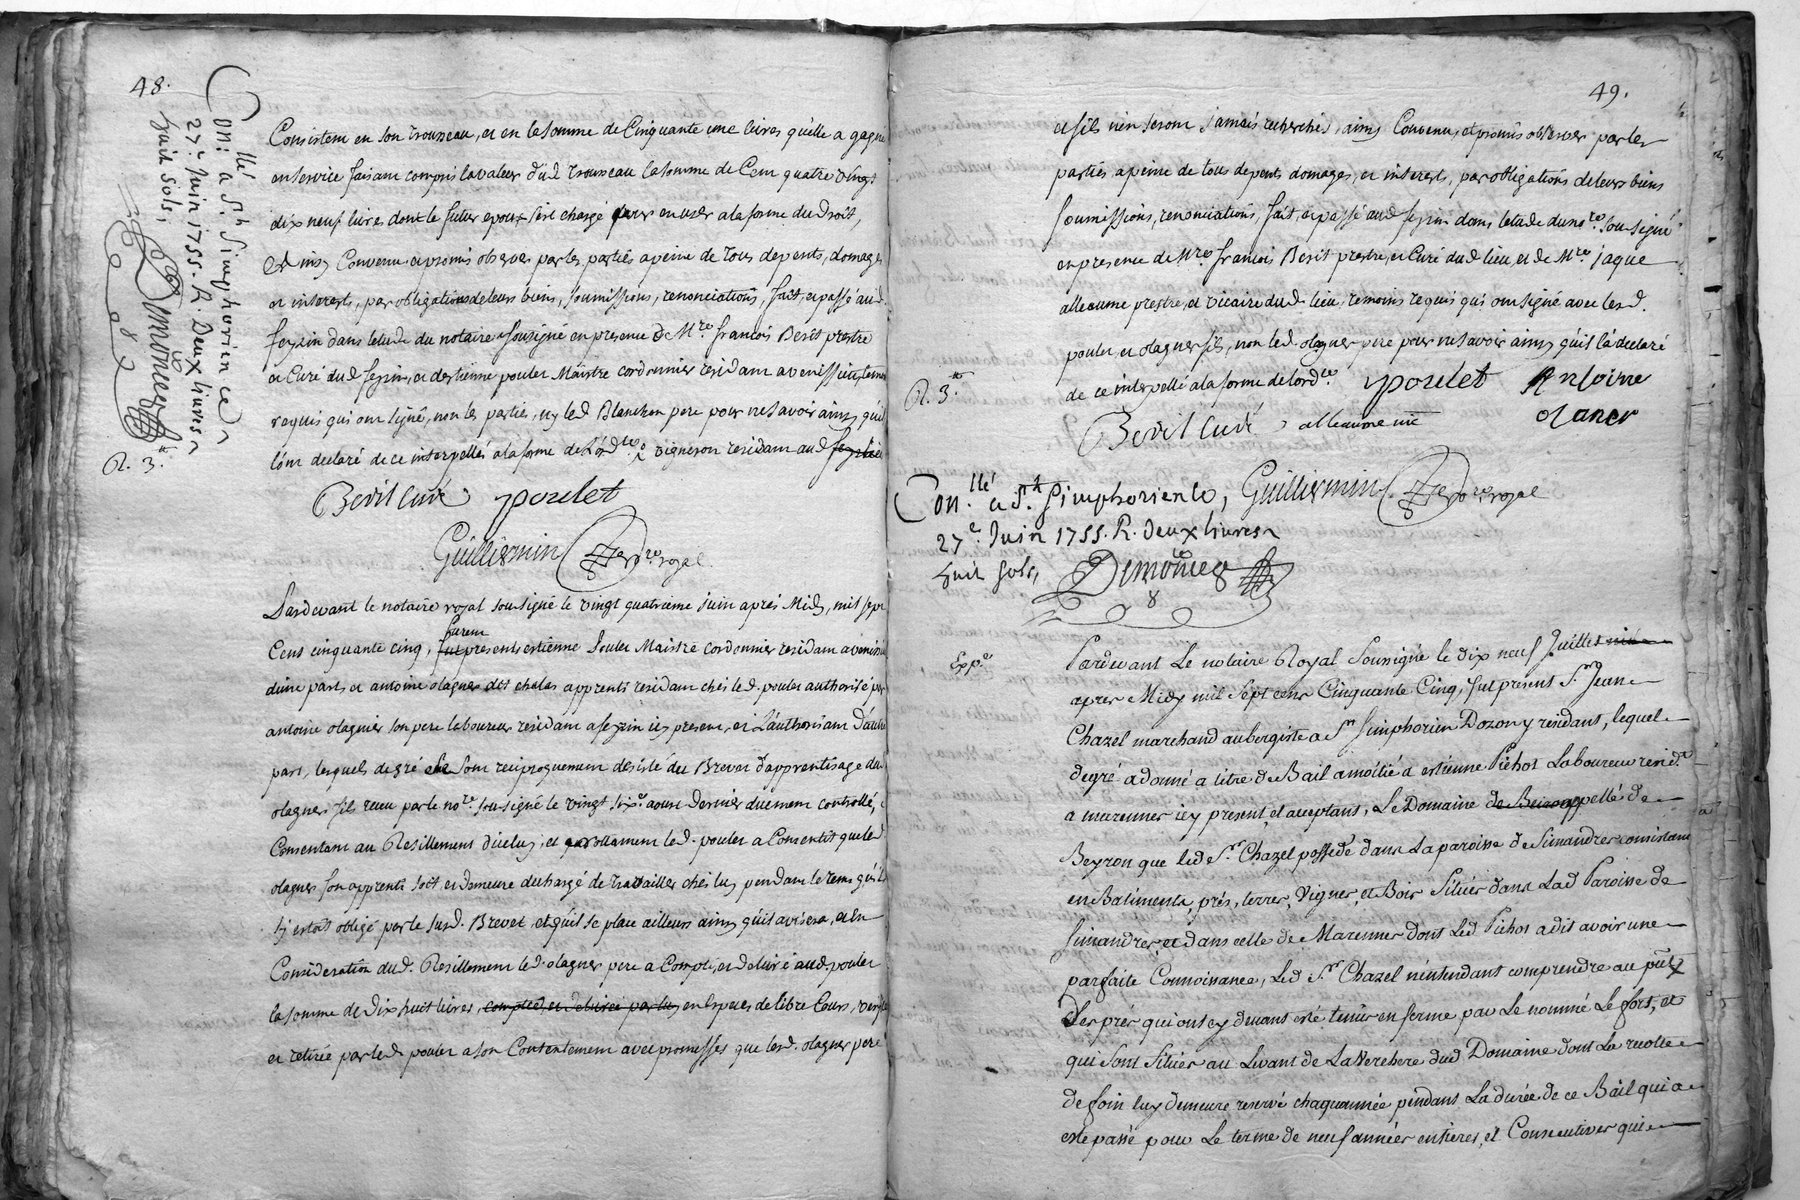 48.
Con.llé a S.t Simphorien ce
27.e Juin 1755. R. Deux livres
huit sols,
Demonnee
R. 3.tt
Consistent en son trousseau, et en la somme de Cinquante une livres qu'elle a gagné
en service faisant compris la valeur dud. trousseau la somme de Cent quatre vingt
dix neuf livre dont le futur epoux s'est chargé pour en user a la forme du droit,
Ainsy Convenu et promis observer par les partiés a peine de tous depents, domages
et interests, par obligations de leurs biens, soumissions, renonciations, fait, et passé aud.
feyzin dans letude du notaire sousigné en presence de M.re francois Berit prestre
et Curé dud feyzin, et de etienne poulet Maistre cordonnier residant a venissieu, temoins
requis qui ont signé, non les partiés, ny led Blanchon pere pour ne savoir ainsy qu'il
l'ont declaré de ce interpellés a la forme de L'ord.ce vigneron residant aud feyzin
Berit Curé poulet
Guillermin no.re royal
Pardevant le notaire royal sousigné le vingt quatrieme juin aprés Midy, mil sept
Cens cinquante cinq, furent
fut presents estienne Poulet Maistre cordonnier residant a venissieu
d'une part, et antoine olagner dit chalas apprenti residant chés led. poulet authorisé par
antoine olagnier son pere laboureur residant a feyzin icy present, et L'authorisant d'autre
part, lesquels de gré se sont reciproquement désisté du Brevet d'apprentisage dud.
olagner fils receu par le no.re sousigné le vingt six.e aoust dernier duement controllé,
Consentant au Resillement d'icelluy, et par ittament led. poulet a Consentit que led
olagner son apprenti soit et demeure dechargé de travailler chés luy pendant le tems qu'il
s'y estoit obligé par le susd. Brevet, et qu'il se place ailleurs ainsy qu'il avisera, et En
Consideration dud. Resillement led. olagner pere a Compté, et delivré aud. poulet
la somme de Dix huit livres, comptée, et delivrée par luy en Especes de libre Cours, verifiée
et retirée par led. poulet a son Contentement avec promesses que lesd. olagner pere
49.
et fils n'en seront jamais recherchés, ainsy Convenu, et promis observer par les
partiés a peine de tous depents, domages, et interests, par obligations de leurs biens
soumissions, renonciations, fait, et passé aud feyzin dans letude du no.re sousigné
en presence de M.re francois Berit prestre, et Curé dud lieu, et de M.re jaque
alleaume prestre, et vicaire dud. lieu, temoins requis qui ont signé avec lesd.
poulet, et olagner fils, non led. olagner pere pour ne savoir ainsy qu'il l'a declaré
de ce interpellé a la forme de lord.ce poulet Antoine
R. 3.tt
olaner
Berit Curé alleaume vic
Con.llé a S.t Simphorien le, Guillermin no.re royal
27.e Juin 1755. R. deux livres
huit sols,
Demonnee
Exp.e
Pardevant Le notaire Royal Sousigné le dix neuf Juillet mil
apres Midy mil Sept cens Cinquante Cinq, fut present S.r Jean
Chazel marchand aubergiste a S.t Simphorien Dozon y residant, lequel
degré a donné a titre de Bail a moitié a estienne Pichot Laboureur resid.t
a marennes icy present, et acceptant, Le Domaine de Beiron appellés de
Beyron que led S.r Chazel possede dans La paroisse de Simandres consistant
en Batiments, prés, terres, Vignes, et Bois Situés dans Lad Paroisse de
Simandres, et dans celle de Marennes dont Led Pichot a dit avoir une
parfaite Connoissance, Led S.r Chazel n'entendant comprendre au pnt
des prés qui ont cy devant esté tenus en ferme par Le nommé Le fort, et
qui sont Situés au Levant de La Verchere dud Domaine dont La recolte
de foin luy demeure reservé chaque année pendant La durée de ce Bail qui a
esté passé pour Le terme de neuf années entieres, et Consecutives qui